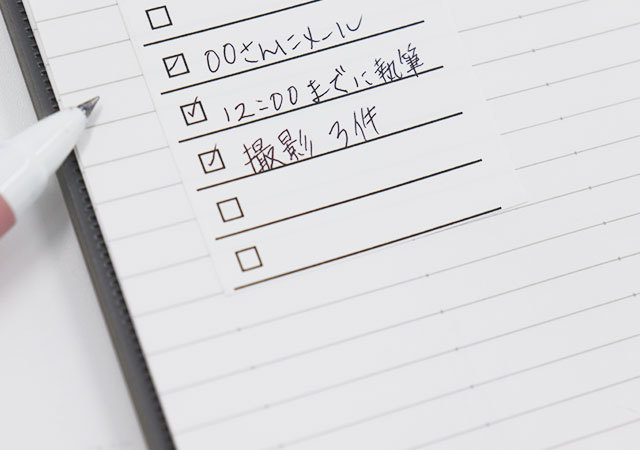 ○○さんにメール
12:00までに執筆
撮影 3件